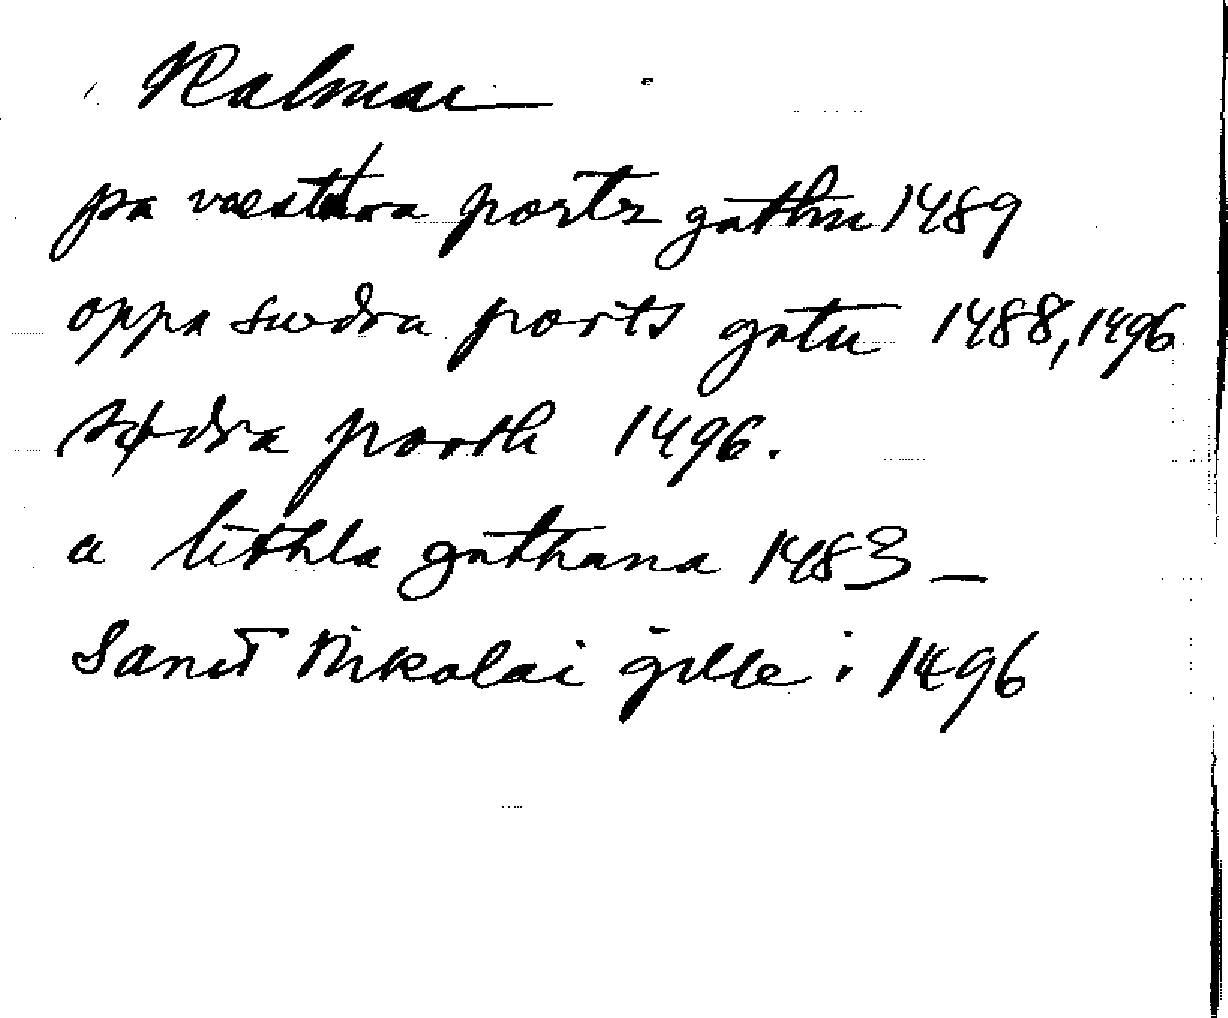 Kalmar
pa væstra portz gathu 1489
oppa swdra ports gatu 1488, 1496
sødra porth 1496.
a lithla gathana 1483 –
Sanct Nikolai gille i 1496